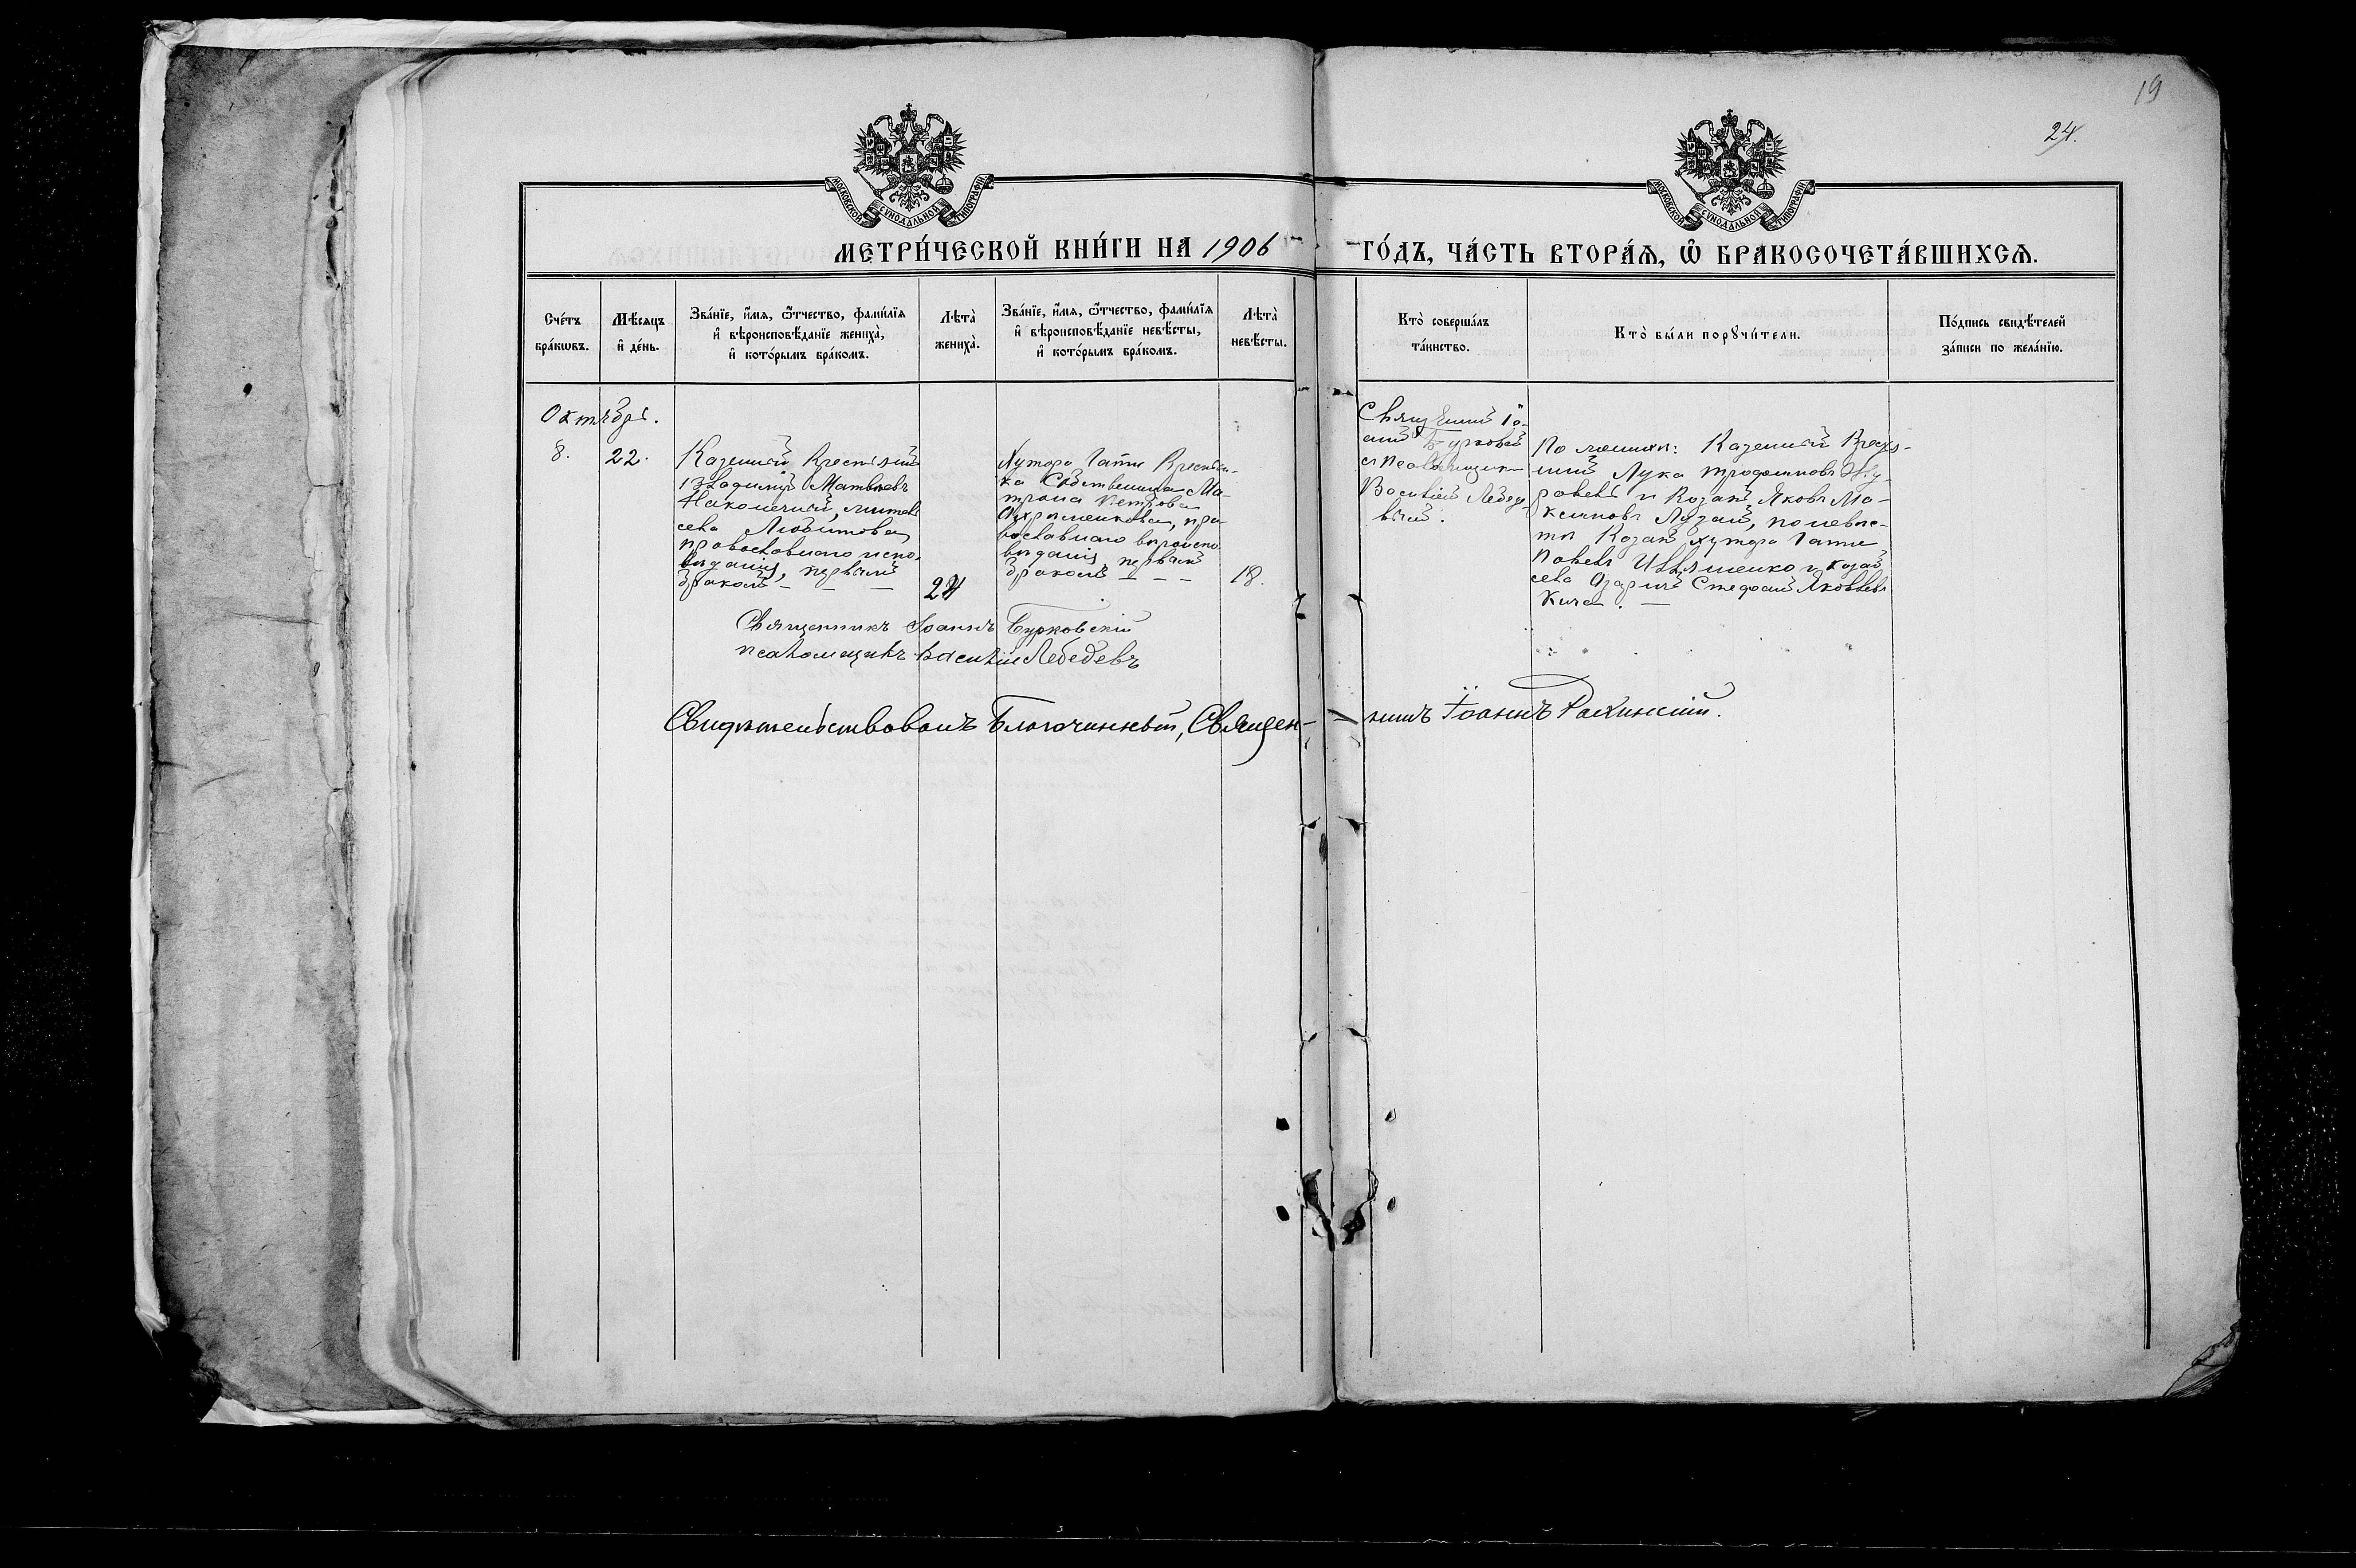 19
24.
МОСКОВСКОЙ СѴНОДАЛЬНОЙ ТИПОГРАФІИ
МОСКОВСКОЙ СѴНОДАЛЬНОЙ ТИПОГРАФІИ
МЕТРИ́ЧЕСКОЙ КНИ́ГИ НА 1906 ГО́ДЪ, ЧА́СТЬ ВТОРА́Я, Ѽ БРАКОСОЧЕТА́ВШИХСѦ.
Сче́тъ
бра́кѡвъ.
Мѣ́сяцъ
и҆ де́нь.
Зва́нїе, и҆́мя, ѻ҆́тчество, фами́лїя
и҆ вѣроисповѣ́данїе жениха̀,
и҆ кото́рымъ бра́комъ.
Лѣта̀
жениха̀.
Зва́нїе, и҆́мя, ѻ҆́тчество, фами́лїя
и҆ вѣроисповѣ́данїе невѣ́сты,
и҆ кото́рымъ бра́комъ.
Лѣта̀
невѣ́сты.
Кто̀ соверша́лъ
та́инство.
Кто̀ бы́ли порꙋчи́тели.
По́дпись свидѣ́телей
за́писи по жела́нїю.
Октябрь.
8.
22.
Казенный Крестьянинъ
Владиміръ Матвѣевъ
Наконечный, житель
села Любитова
православнаго испо-
вѣданія, первымъ
бракомъ – – –
24
Хутора Гати Крестьян-
ка Собственница Ма-
трона Петрова
православнаго вѣроиспо-
вѣданія, первымъ
бракомъ – – –
18.
Священникъ Іо-
аннъ Бурковскій
съ Псаломщикомъ
Василіемъ Лебеде-
вымъ.
По женихѣ: Казенный Крестья-
нинъ Лука Трофимовъ
и Козакъ Яковъ Ма-
ксимовъ Лузанъ, по невѣс-
тѣ Козакъ хутора Гати
Павелъ Ивлшенко и Козакъ
села Стефанъ Яковлевъ
Кича. –
Священникъ Іоаннъ Бурковскій
псаломщикъ Василій Лебедевъ
Свидѣтельствовалъ Благочинный, Священ-никъ Іоаннъ Рахинскій.